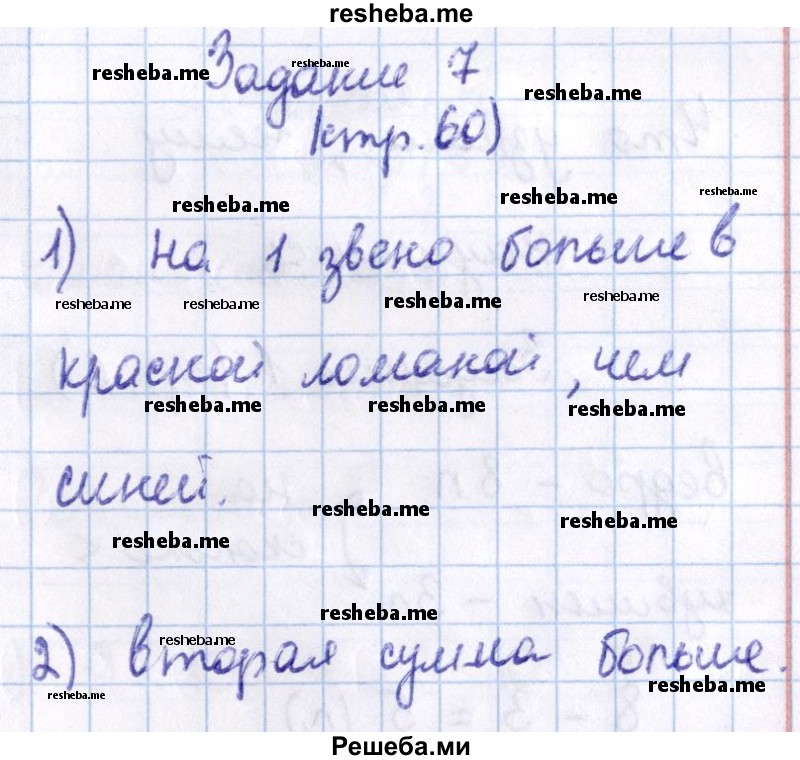 resheba.me
resheba.me
resheba.me Задание 7
resheba.me
(стр. 60)
resheba.me resheba.me resheba.me
1) На 1 звено больше в
resheba.me resheba.me resheba.me resheba.me
красной ломаной, чем
resheba.me resheba.me resheba.me
синей.
resheba.me
resheba.me resheba.me
resheba.me
2) вторая сумма больше.
resheba.me
resheba.me resheba.me
Решеба.ми